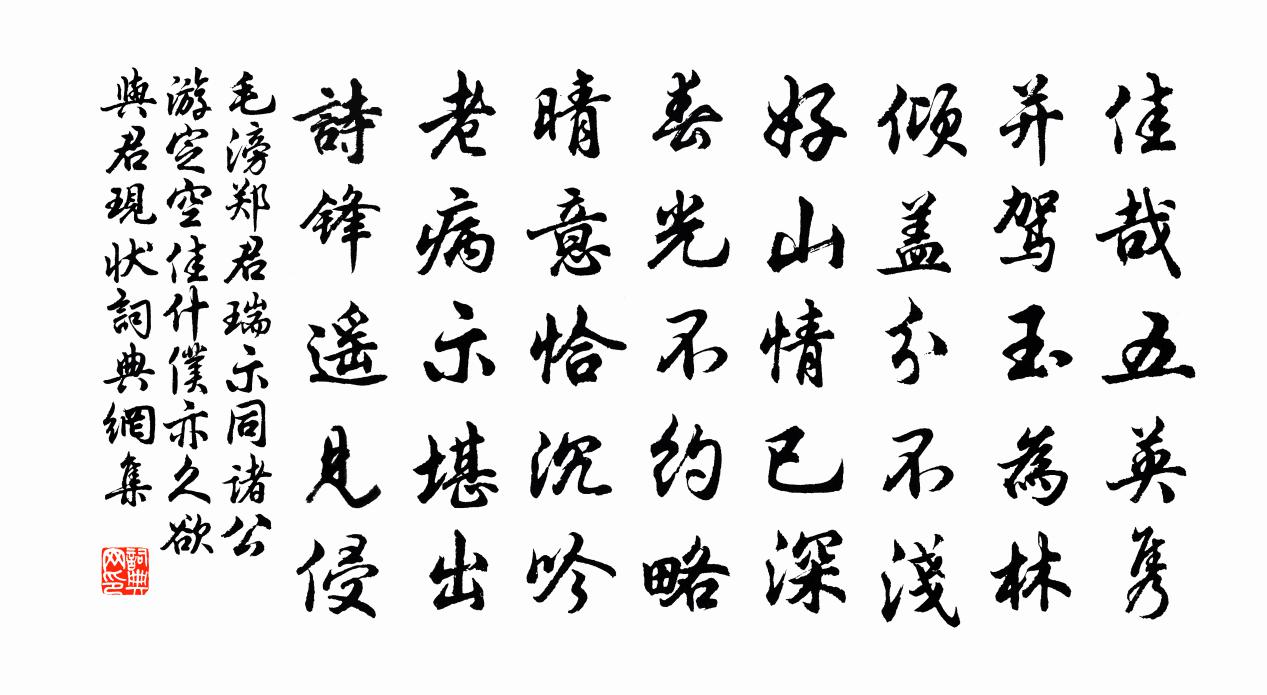 佳哉五英隽
并驾玉為林
倾盖分不淺
好山情已深
春光不约略
晴意恰沉吟
老病示堪出
詩锋遥見侵
毛滂郑君瑞示同诸公
游定空佳什僕亦久欲
與君現状詞典網集
詞典网印